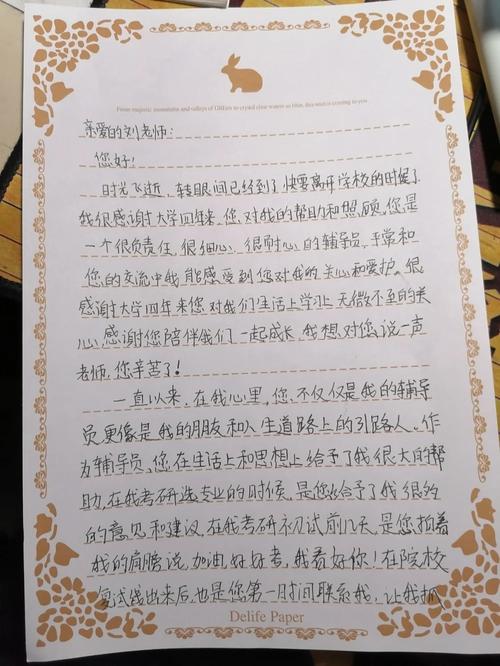 From majestic mountains and valleys of Green to crystal clear waters so blue, this wish is coming to you.
亲爱的刘老师:
您好!
时光飞逝,转眼间已经到了快要离开学校的时候了
我很感谢大学四年来,您对我的帮助和照顾,您是
一个很负责任、很细心、很耐心的辅导员,平常和
您的交流中我能感受到您对我的关心和爱护。很
感谢大学四年来您对我们生活上学习上无微不至的关
心,感谢您陪伴我们一起成长,我想对您说一声
老师,您辛苦了!
一直以来,在我心里,您不仅仅是我的辅导
员更像是我的朋友和人生道路上的引路人。作
为辅导员,您在生活上和思想上给予了我很大的帮
助,在我考研选专业的时候,是您给予了我很多
的意见和建议,在我考研初试前几天,是您拍着
我的肩膀说,加油好好考,我看好你!在院校
复试线出来后,也是您第一时间联系我,让我抓
Delife Paper